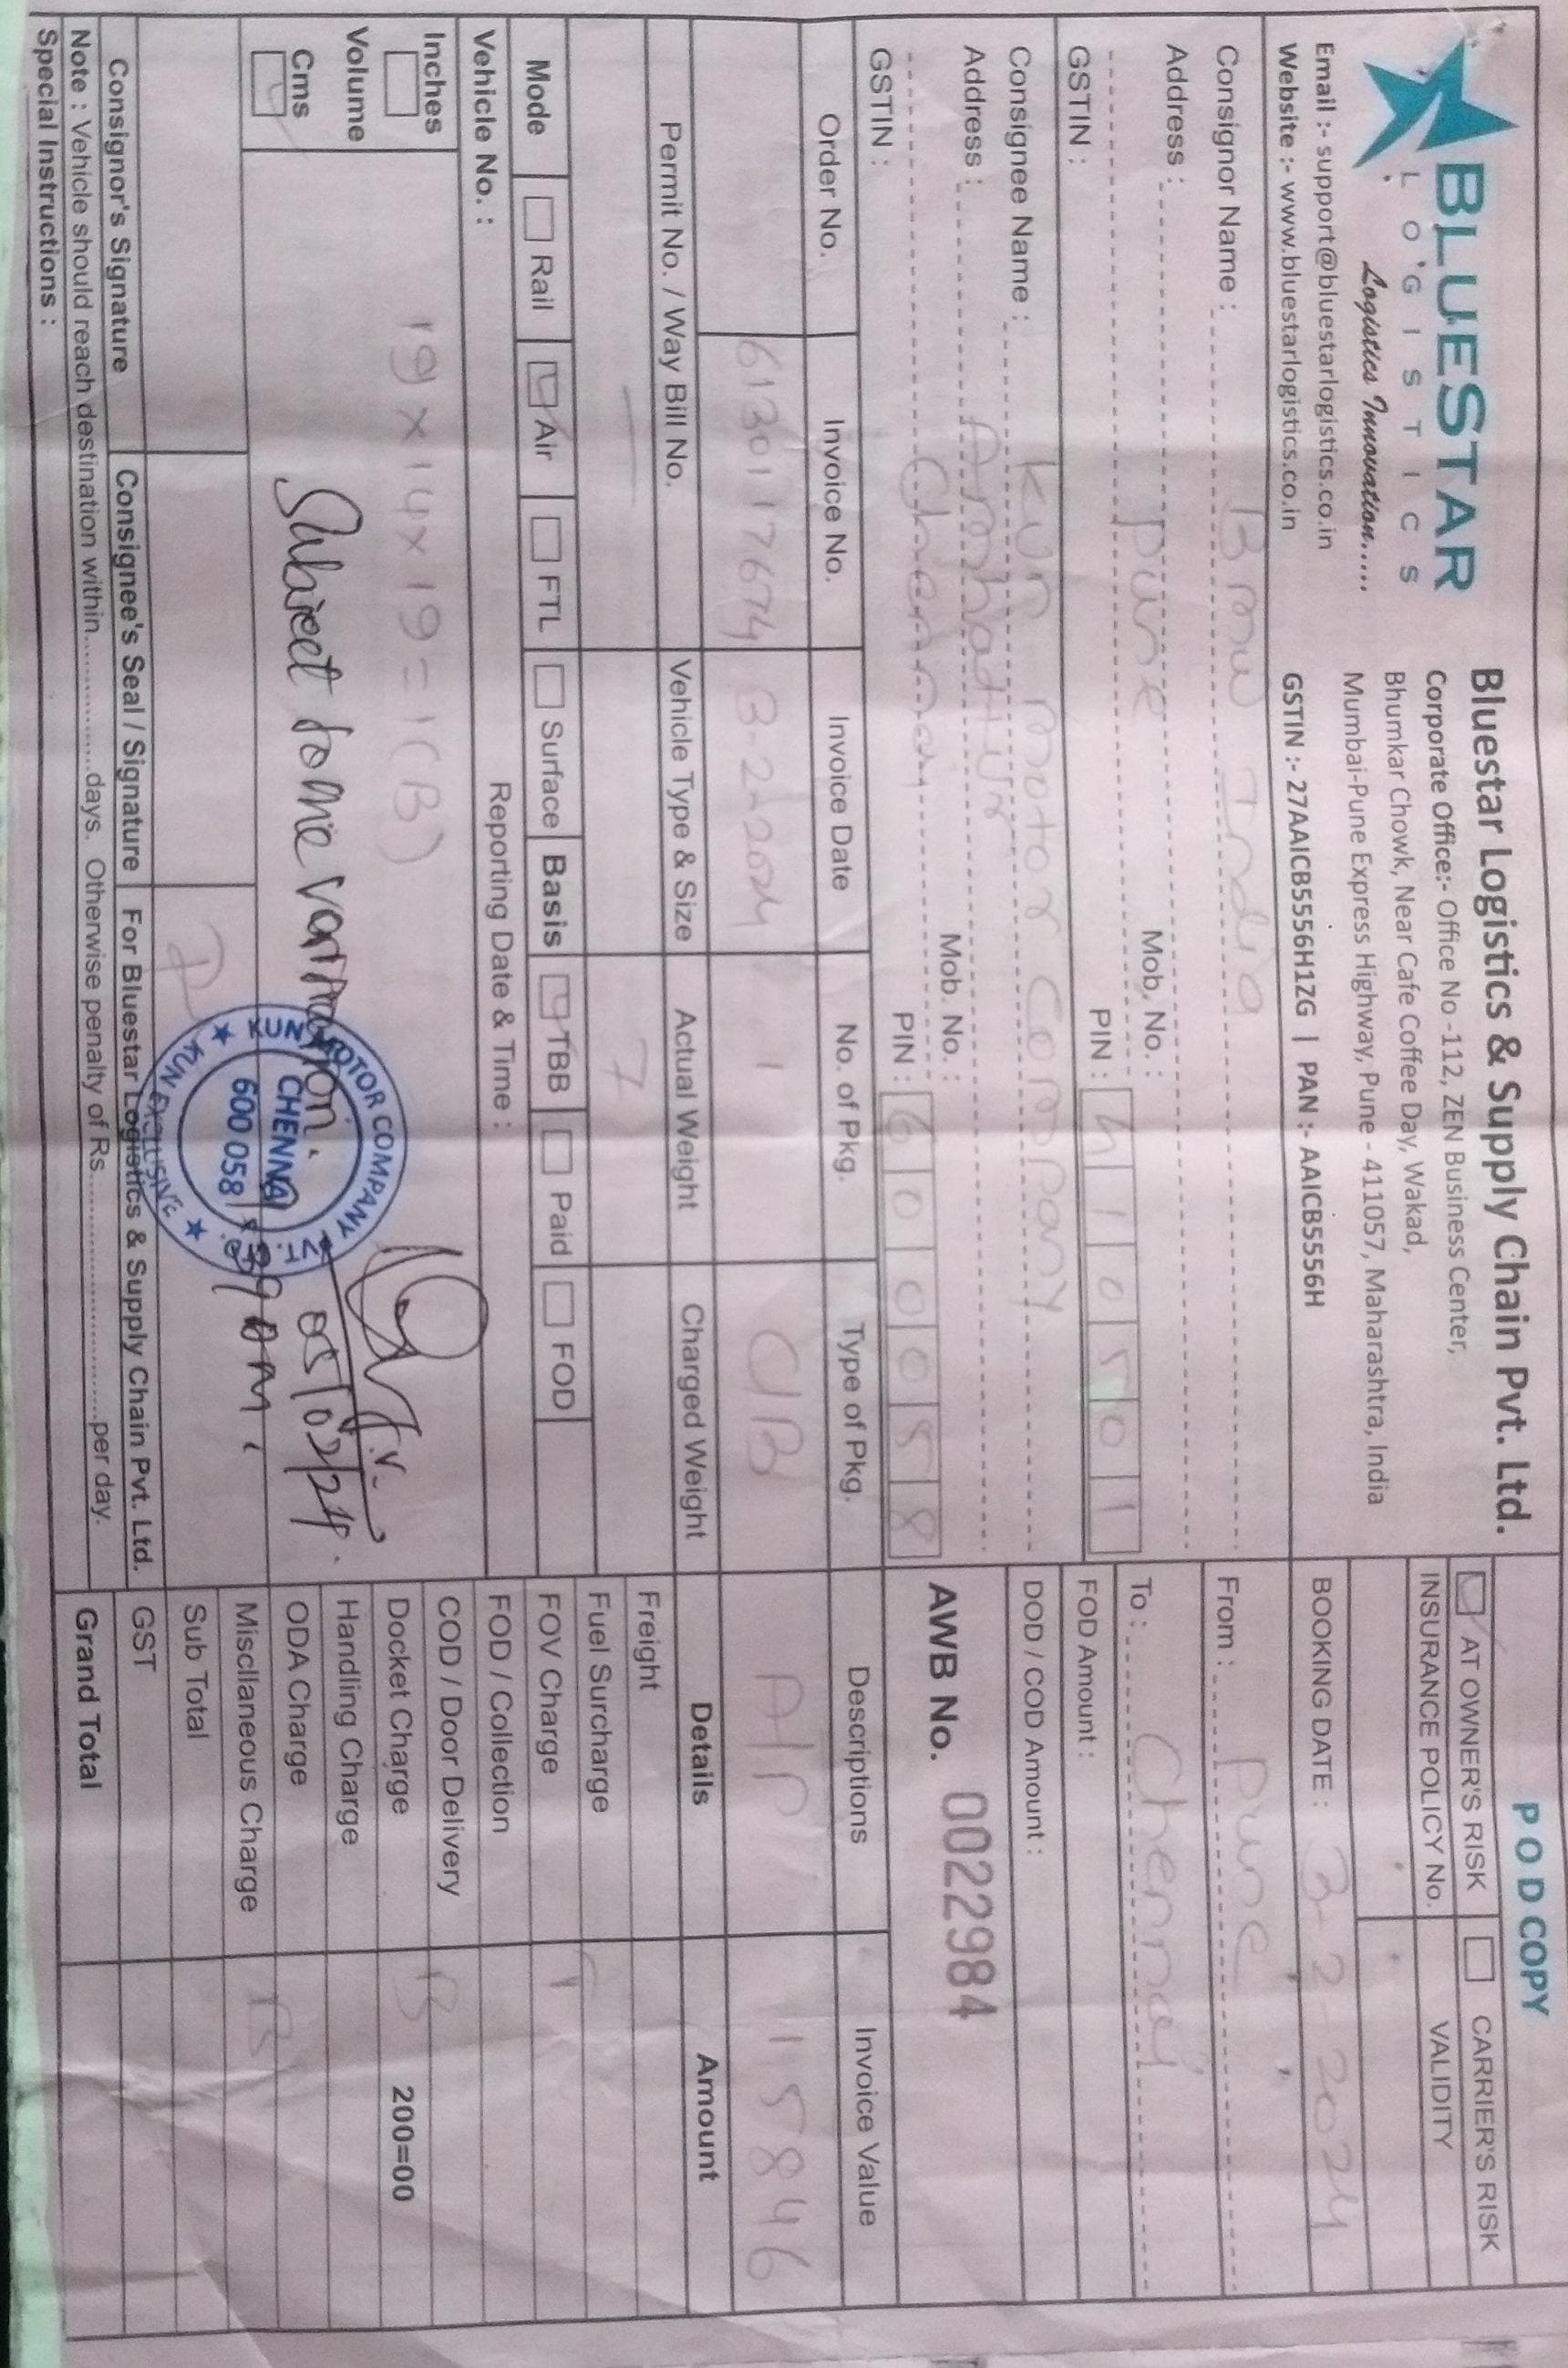 BLUESTAR
LOGISTICS
Logistics Innovation.....
Email :- support@bluestarlogistics.co.in
Website :- www.bluestarlogistics.co.in
Bluestar Logistics & Supply Chain Pvt. Ltd.
Corporate Office:- Office No -112, ZEN Business Center,
Bhumkar Chowk, Near Cafe Coffee Day, Wakad,
Mumbai-Pune Express Highway, Pune - 411057, Maharashtra, India
GSTIN :- 27AAICB5556H1ZG | PAN :- AAICB5556H
POD COPY
AT OWNER'S RISK CARRIER'S RISK
INSURANCE POLICY No. VALIDITY
BOOKING DATE : 3-2 2024
Consignor Name : Bmw India
Address :
Pune Mob. No. :
PIN : 410501
GSTIN :
From : Pune
To : Chennai
FOD Amount :
DOD / COD Amount :
Consignee Name : Kun motor company
Address : Ambattur
Chennai Mob. No. :
PIN : 600058
GSTIN :
AWB No. 0022984
Order No. Invoice No. Invoice Date No. of Pkg. Type of Pkg. Descriptions Invoice Value
6130117674 3-2-2024 1 C/B A/P 15846
Permit No. / Way Bill No. Vehicle Type & Size Actual Weight Charged Weight
7
Mode Rail Air FTL Surface Basis TBB Paid FOD
Vehicle No. : Reporting Date & Time :
Inches
Volume
Cms
19x14x19=1(B)
Subject to me
05/02/24.
KUN MOTOR COMPANY PVT. LTD.
CHENNAI
600 058
KUN EXCLUSIVE
Details Amount
Freight
Fuel Surcharge
FOV Charge
FOD / Collection
COD / Door Delivery
Docket Charge 200=00
Handling Charge
ODA Charge
Miscllaneous Charge
Sub Total
GST
Grand Total
Consignor's Signature Consignee's Seal / Signature For Bluestar Logistics & Supply Chain Pvt. Ltd.
Note : Vehicle should reach destination within.................days. Otherwise penalty of Rs...............................per day.
Special Instructions :